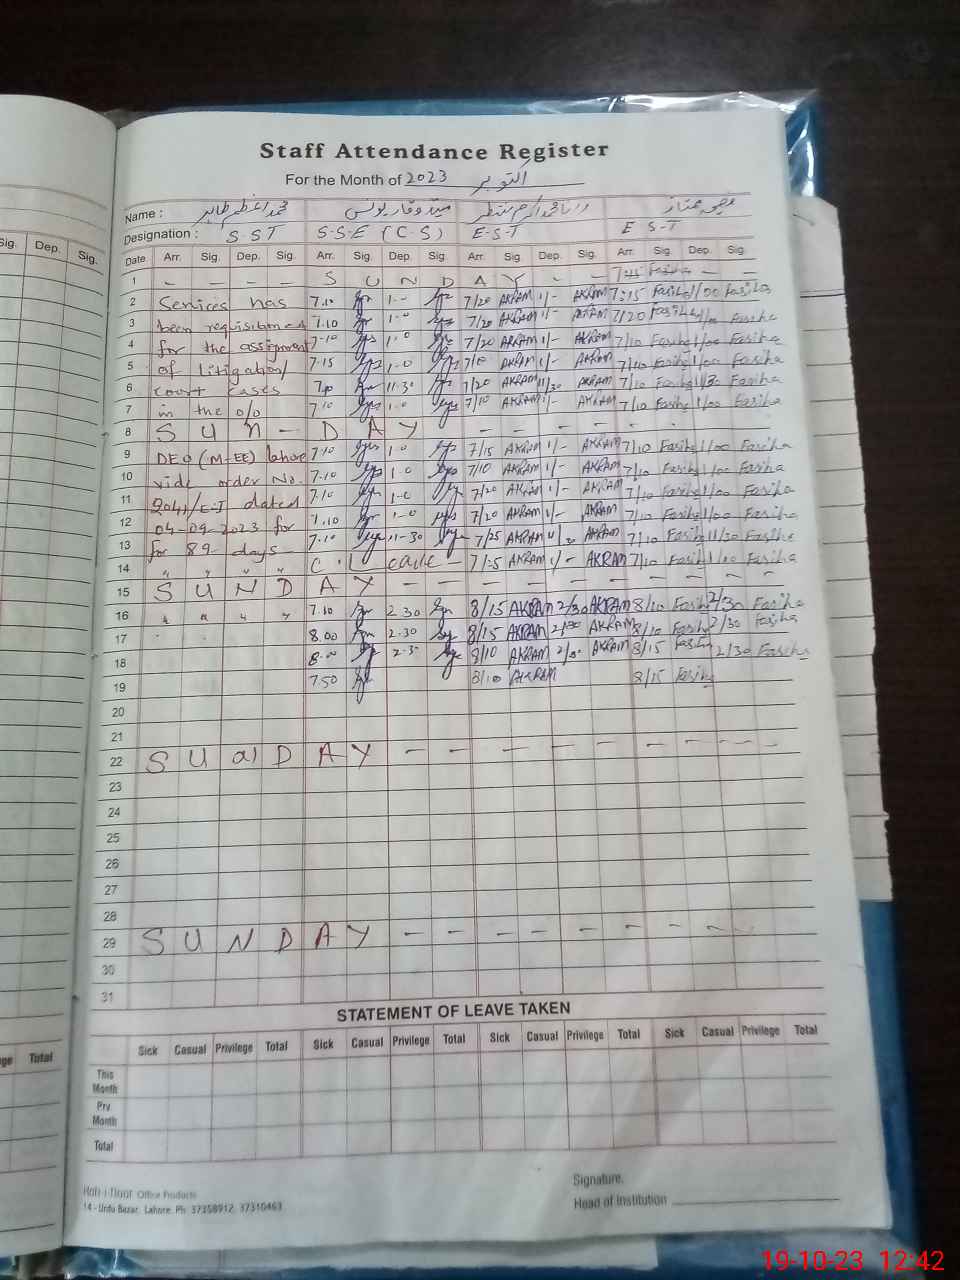 Staff Attendance Register
For the Month of 2023 اکتوبر
Name : محمد اعظم طاہر سید وقار یونس رانا محمد اکرم منتظر فصیحہ ممتاز
Designation : S-ST S-S-E (C-S) E-S-T E S-T
Sig. Dep. Sig. Date Arr. Sig. Dep. Sig. Arr. Sig. Dep. Sig. Arr. Sig. Dep. Sig. Arr. Sig. Dep. Sig.
1 - - - - S U N D A Y - - 7:45 Fasiha - -
2 Services has 7.10 1-0 7/20 AKRAM 1/- AKRAM 7:15 Fasiha 1/00 Fasiha
3 been requisitioned 7.10 1-0 7/20 AKRAM 1/- AKRAM 7/20 Fasiha Fasiha
4 for the assignment 7-10 1-0 7/20 AKRAM 1/- AKRAM 7/10 Fasiha 1/00 Fasiha
5 of litigation/ 7-15 1-0 7/10 AKRAM 1/- AKRAM 7/10 Fasiha 1/00 Fasiha
6 court cases 11-30 7/20 AKRAM 11/30 AKRAM 7/10 Fasiha 11/30 Fasiha
7 in the o/o 7.10 1-0 7/10 AKRAM 1/- AKRAM 7/10 Fasiha 1/00 Fasiha
8 S U N - D A Y - - - - - - - -
9 DEO (M-EE) Lahore 7.10 1-0 7/15 AKRAM 1/- AKRAM 7/10 Fasiha 1/00 Fasiha
10 vide order No. 7.10 1-0 7/10 AKRAM 1/- AKRAM 7/10 Fasiha 1/00 Fasiha
11 /E-I dated 7.10 1-0 7/20 AKRAM 1/- AKRAM 7/10 Fasiha 1/00 Fasiha
12 04-09-2023 for 7.10 1-0 7/20 AKRAM 1/- AKRAM 7/10 Fasiha 1/00 Fasiha
13 for 89- days- 7-10 11-30 7/25 AKRAM 11/30 AKRAM 7/10 Fasiha 11/30 Fasiha
14 " " " " C.L eave - AKRAM 1/- AKRAM 7/10 Fasiha 1/00 Fasiha
15 S U N D A Y - - - - - - - - - -
16 " " " " 7.10 2.30 8/15 AKRAM 2/30 AKRAM 8/10 Fasiha 2/30 Fasiha
17 8.00 2.30 8/15 AKRAM 2/30 AKRAM 8/10 Fasiha 2/30 Fasiha
18 8-00 2.30 8/10 AKRAM AKRAM 8/15 Fasiha 2/30 Fasiha
19 7.50 8/10 AKRAM 8/15 Fasiha
20
21
22 S U N D A Y - - - - - - - - - -
23
24
25
26
27
28
29 S U N D A Y - - - - - - - - -
30
31
STATEMENT OF LEAVE TAKEN
Sick Casual Privilege Total Sick Casual Privilege Total Sick Casual Privilege Total Sick Casual Privilege Total
Total
This Month
Prv Month
Total
Signature.
Koh-i-Noor Office Products
14 - Urdu Bazar, Lahore. Ph: 37358912, 37310463
Head of Institution
19-10-23 12:42